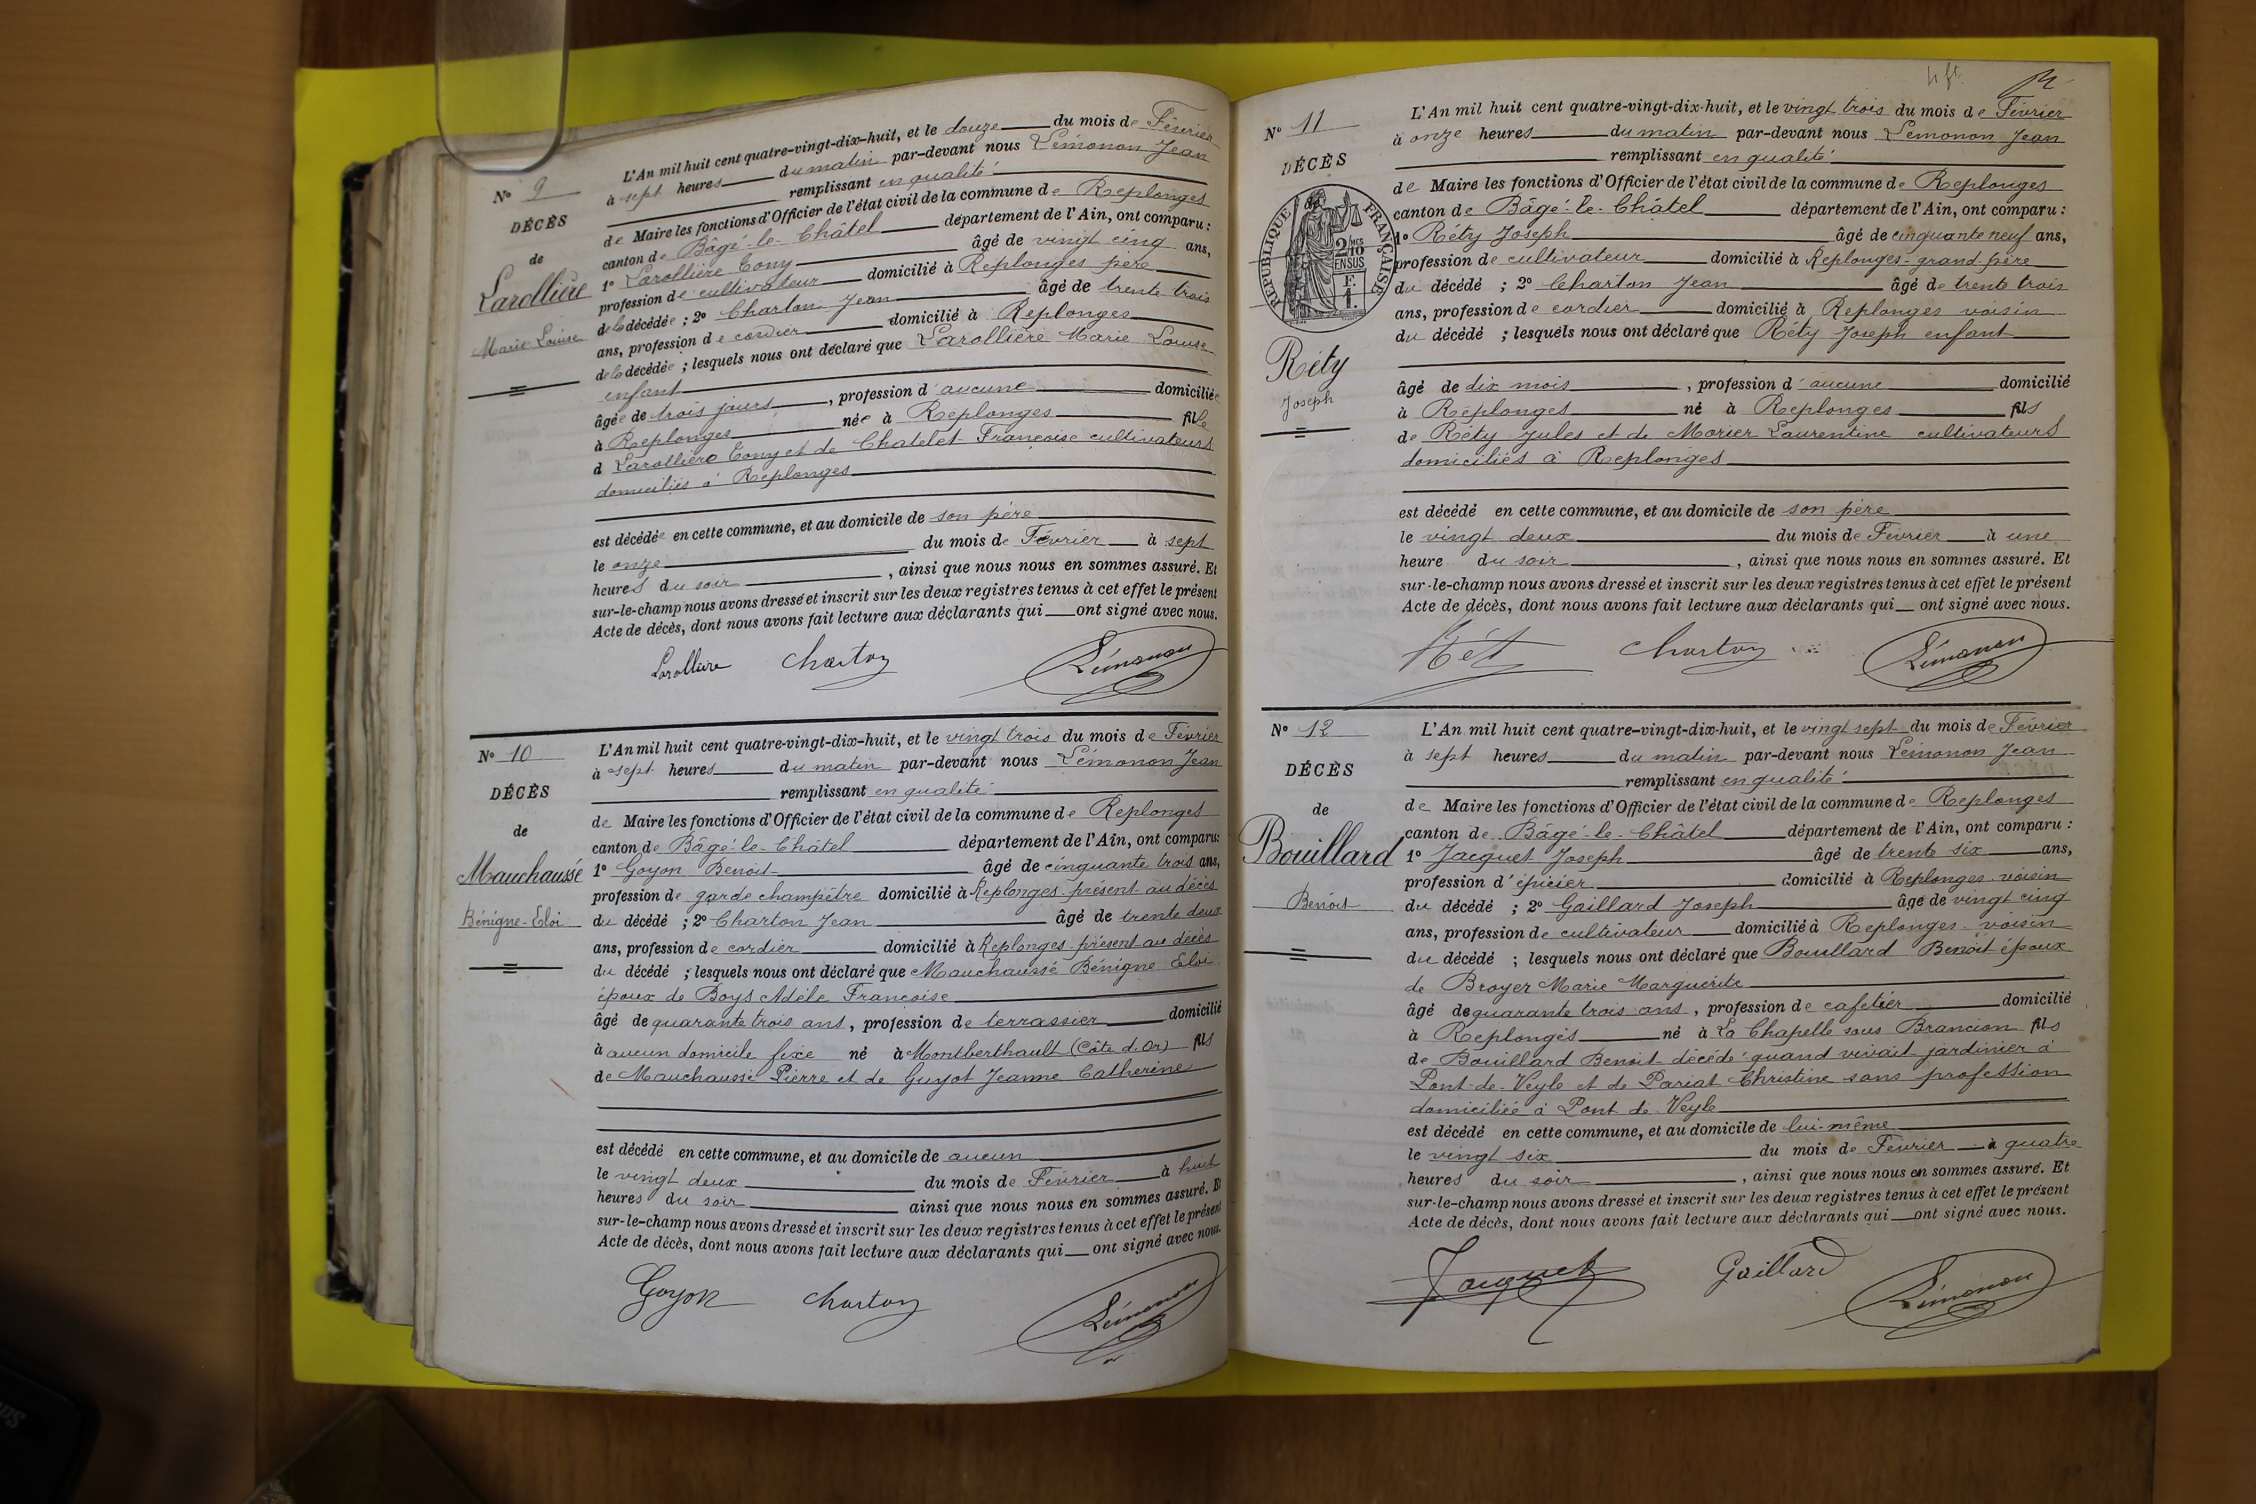 N° 9
DÉCÈS
de
Larollière
Marie Louise
L'An mil huit cent quatre-vingt-dix-huit, et le douze du mois de Février
à sept heures du matin par-devant nous Lémonon Jean
remplissant en qualité
de Maire les fonctions d'Officier de l'état civil de la commune de Replonges
canton de Bâgé-le-Châtel département de l'Ain, ont comparu :
1° Larollière Tony âgé de vingt cinq ans,
profession de cultivateur domicilié à Replonges père
de la décédée ; 2° Charton Jean âgé de trente trois
ans, profession de cordier domicilié à Replonges
de la décédée ; lesquels nous ont déclaré que Larollière Marie Louise
enfant
âgée de trois jours, profession d'aucune domiciliée
à Replonges née à Replonges fille
d Larollière Tony et de Chatelet Françoise cultivateurs
domiciliés à Replonges
est décédée en cette commune, et au domicile de son père
le onze du mois de Février à sept
heures du soir, ainsi que nous nous en sommes assuré. Et
sur-le-champ nous avons dressé et inscrit sur les deux registres tenus à cet effet le présent
Acte de décès, dont nous avons fait lecture aux déclarants qui ont signé avec nous.
Larollière Charton Lémonon
N° 10
DÉCÈS
de
Mauchaussé
Bénigne-Eloi
L'An mil huit cent quatre-vingt-dix-huit, et le vingt trois du mois de Février
à sept heures du matin par-devant nous Lémonon Jean
remplissant en qualité
de Maire les fonctions d'Officier de l'état civil de la commune de Replonges
canton de Bâgé-le-Châtel département de l'Ain, ont comparu:
1° Goyon Benoit âgé de cinquante trois ans,
profession de garde champêtre domicilié à Replonges présent au décès
du décédé ; 2° Charton Jean âgé de trente deux
ans, profession de cordier domicilié à Replonges présent au décès
du décédé ; lesquels nous ont déclaré que Mauchaussé Bénigne Eloi
époux de Boys Adèle Françoise
âgé de quarante trois ans, profession de terrassier domicilié
à aucun domicile fixe né à Montberthault (Côte d'Or) fils
de Mauchaussé Pierre et de Guyot Jeanne Catherine
est décédé en cette commune, et au domicile de aucun
le vingt deux du mois de Février à huit
heures du soir ainsi que nous nous en sommes assuré. Et
sur-le-champ nous avons dressé et inscrit sur les deux registres tenus à cet effet le présent
Acte de décès, dont nous avons fait lecture aux déclarants qui ont signé avec nous.
Goyon Charton Lémonon
N° 11
DÉCÈS
RÉPUBLIQUE FRANÇAISE
2/10 EN SUS
F. 1.
Réty
Joseph
L'An mil huit cent quatre-vingt-dix-huit, et le vingt trois du mois de Février
à onze heures du matin par-devant nous Lémonon Jean
remplissant en qualité
de Maire les fonctions d'Officier de l'état civil de la commune de Replonges
canton de Bâgé-le-Châtel département de l'Ain, ont comparu :
1° Réty Joseph âgé de cinquante neuf ans,
profession de cultivateur domicilié à Replonges-grand-père
du décédé ; 2° Charton Jean âgé de trente trois
ans, profession de cordier domicilié à Replonges voisin
du décédé ; lesquels nous ont déclaré que Réty Joseph enfant
âgé de dix mois, profession d'aucune domicilié
à Replonges né à Replonges fils
de Réty Jules et de Morier Laurentine cultivateurs
domiciliés à Replonges
est décédé en cette commune, et au domicile de son père
le vingt deux du mois de Février à une
heure du soir, ainsi que nous nous en sommes assuré. Et
sur-le-champ nous avons dressé et inscrit sur les deux registres tenus à cet effet le présent
Acte de décès, dont nous avons fait lecture aux déclarants qui ont signé avec nous.
Rét Charton Lémonon
N° 12
DÉCÈS
de
Bouillard
Benoit
L'An mil huit cent quatre-vingt-dix-huit, et le vingt sept du mois de Février
à sept heures du matin par-devant nous Lémonon Jean
remplissant en qualité
de Maire les fonctions d'Officier de l'état civil de la commune de Replonges
canton de Bâgé-le-Châtel département de l'Ain, ont comparu :
1° Jacquet Joseph âgé de trente six ans,
profession d'épicier domicilié à Replonges voisin
du décédé ; 2° Gaillard Joseph âgé de vingt cinq
ans, profession de cultivateur domicilié à Replonges voisin
du décédé ; lesquels nous ont déclaré que Bouillard Benoit époux
de Broyer Marie Marguerite
âgé de quarante trois ans, profession de cafetier domicilié
à Replonges né à La Chapelle sous Brancion fils
de Bouillard Benoit décédé quand vivait jardinier à
Pont-de-Veyle et de Pariat Christine sans profession
domiciliée à Pont de Veyle
est décédé en cette commune, et au domicile de lui-même
le vingt six du mois de Février à quatre
heures du soir, ainsi que nous nous en sommes assuré. Et
sur-le-champ nous avons dressé et inscrit sur les deux registres tenus à cet effet le présent
Acte de décès, dont nous avons fait lecture aux déclarants qui ont signé avec nous.
Jacquet Gaillard Lémonon